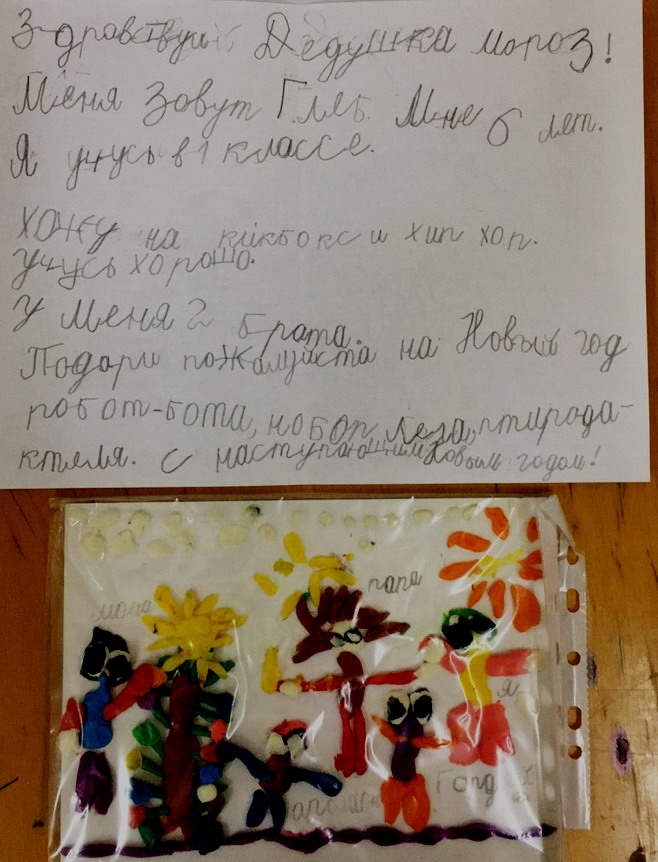 Здравствуй Дедушка мороз!
Меня Зовут Глеб. Мне 6 лет.
Я учусь в 1 классе.
хожу на кикбокс и хип хоп.
учусь хорошо.
У меня 2 брата.
Подари пожалуйста на Новый год
робот-бота, набор Лега, птирода-
ктеля. С наступающим Новым годом!
мама
папа
я